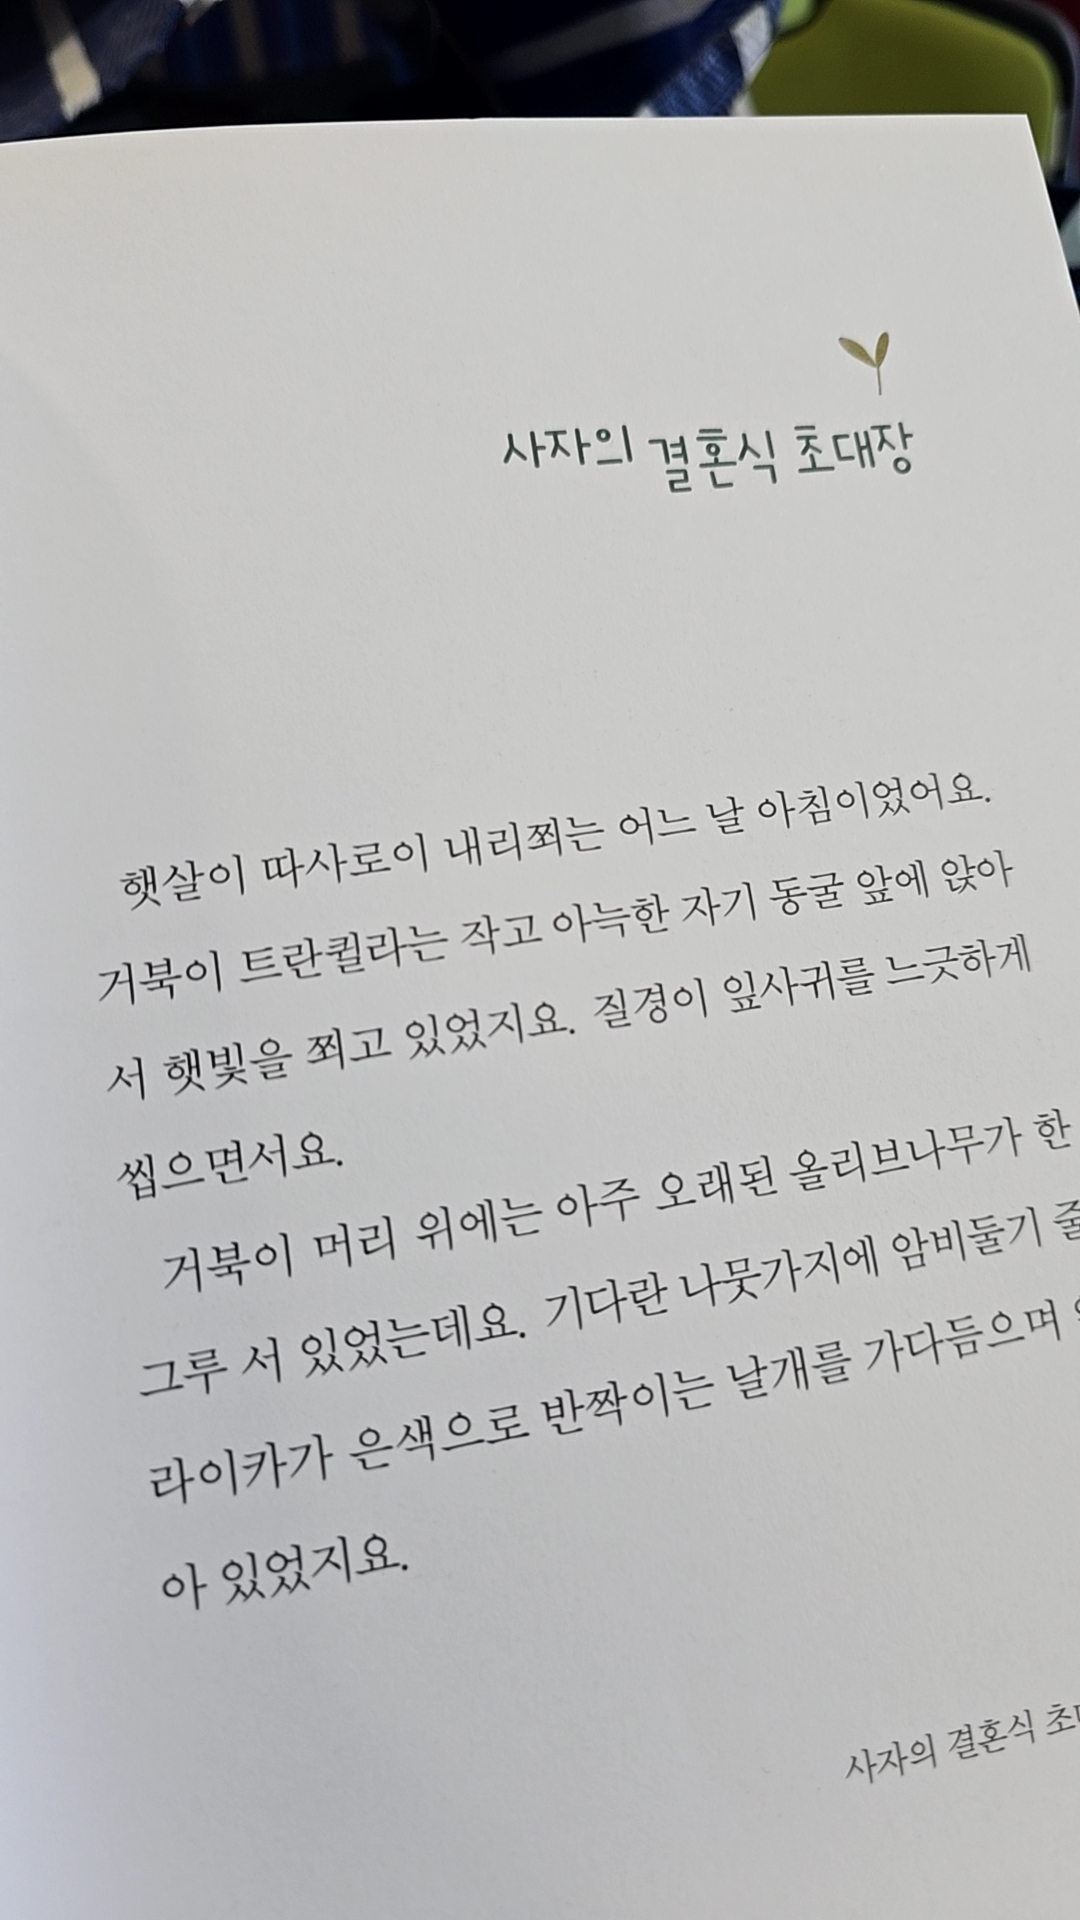 사자의 결혼식 초대장
햇살이 따사로이 내리쬐는 어느 날 아침이었어요.
거북이 트란퀼라는 작고 아늑한 자기 동굴 앞에 앉아
서 햇빛을 쬐고 있었지요. 질경이 잎사귀를 느긋하게
씹으면서요.
거북이 머리 위에는 아주 오래된 올리브나무가 한
그루 서 있었는데요. 기다란 나뭇가지에 암비둘기
라이카가 은색으로 반짝이는 날개를 가다듬으며
아 있었지요.
사자의 결혼식